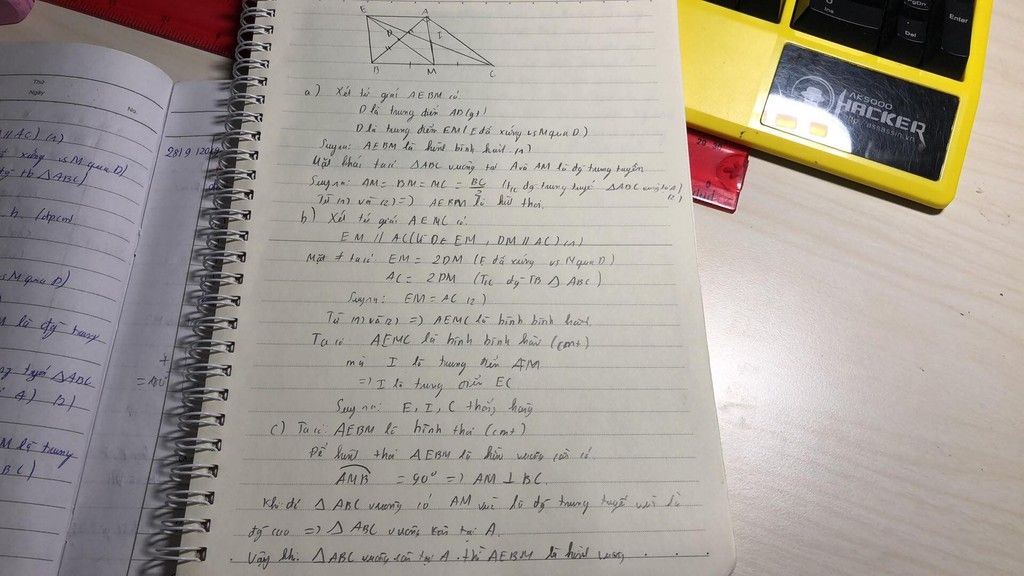 E A
D I
B M C
a) Xét tứ giác AEBM có
D là trung điểm AD(gt)
D là trung điểm EM (E đối xứng vs M qua D)
Suy ra: AEBM là hình bình hành (1)
Mặt khác ta có ΔABC vuông tại A và AM là đg trung tuyến
Suy ra: AM = BM = MC = BC/2 (T/c đg trung tuyến ΔABC vuông tại A) (2)
Từ (1) và (2) => AEBM là hình thoi.
b) Xét tứ giác AEMC có
EM // AC (Vì D ∈ EM, DM // AC) (1)
Mặt ≠ ta có EM = 2DM (E đối xứng vs M qua D)
AC = 2DM (T/c đg TB ΔABC)
Suy ra: EM = AC (2)
Từ (1) và (2) => AEMC là bình bình hành
Ta có AEMC là hình bình hành (cmt)
mà I là trung điểm AM
=> I là trung điểm EC
Suy ra: E, I, C thẳng hàng
c) Ta có: AEBM là hình thoi (cmt)
Để hình thoi AEBM là hình vuông cần có
AMB = 90° => AM ⊥ BC.
Khi đó ΔABC vuông có AM vừa là đg trung tuyến vừa là
đg cao => ΔABC vuông cân tại A.
Vậy khi ΔABC vuông cân tại A thì AEBM là hình vuông
Thứ
Ngày
No.
// AC) (1)
xứng vs M qua D)
đg tb ΔABC)
h (đpcm)
vs M qua D)
M là đg trung
ng tuyến ΔABC
M là trung
BC)
= 90°
AK5000
HACKER
Enter
Ins
Del